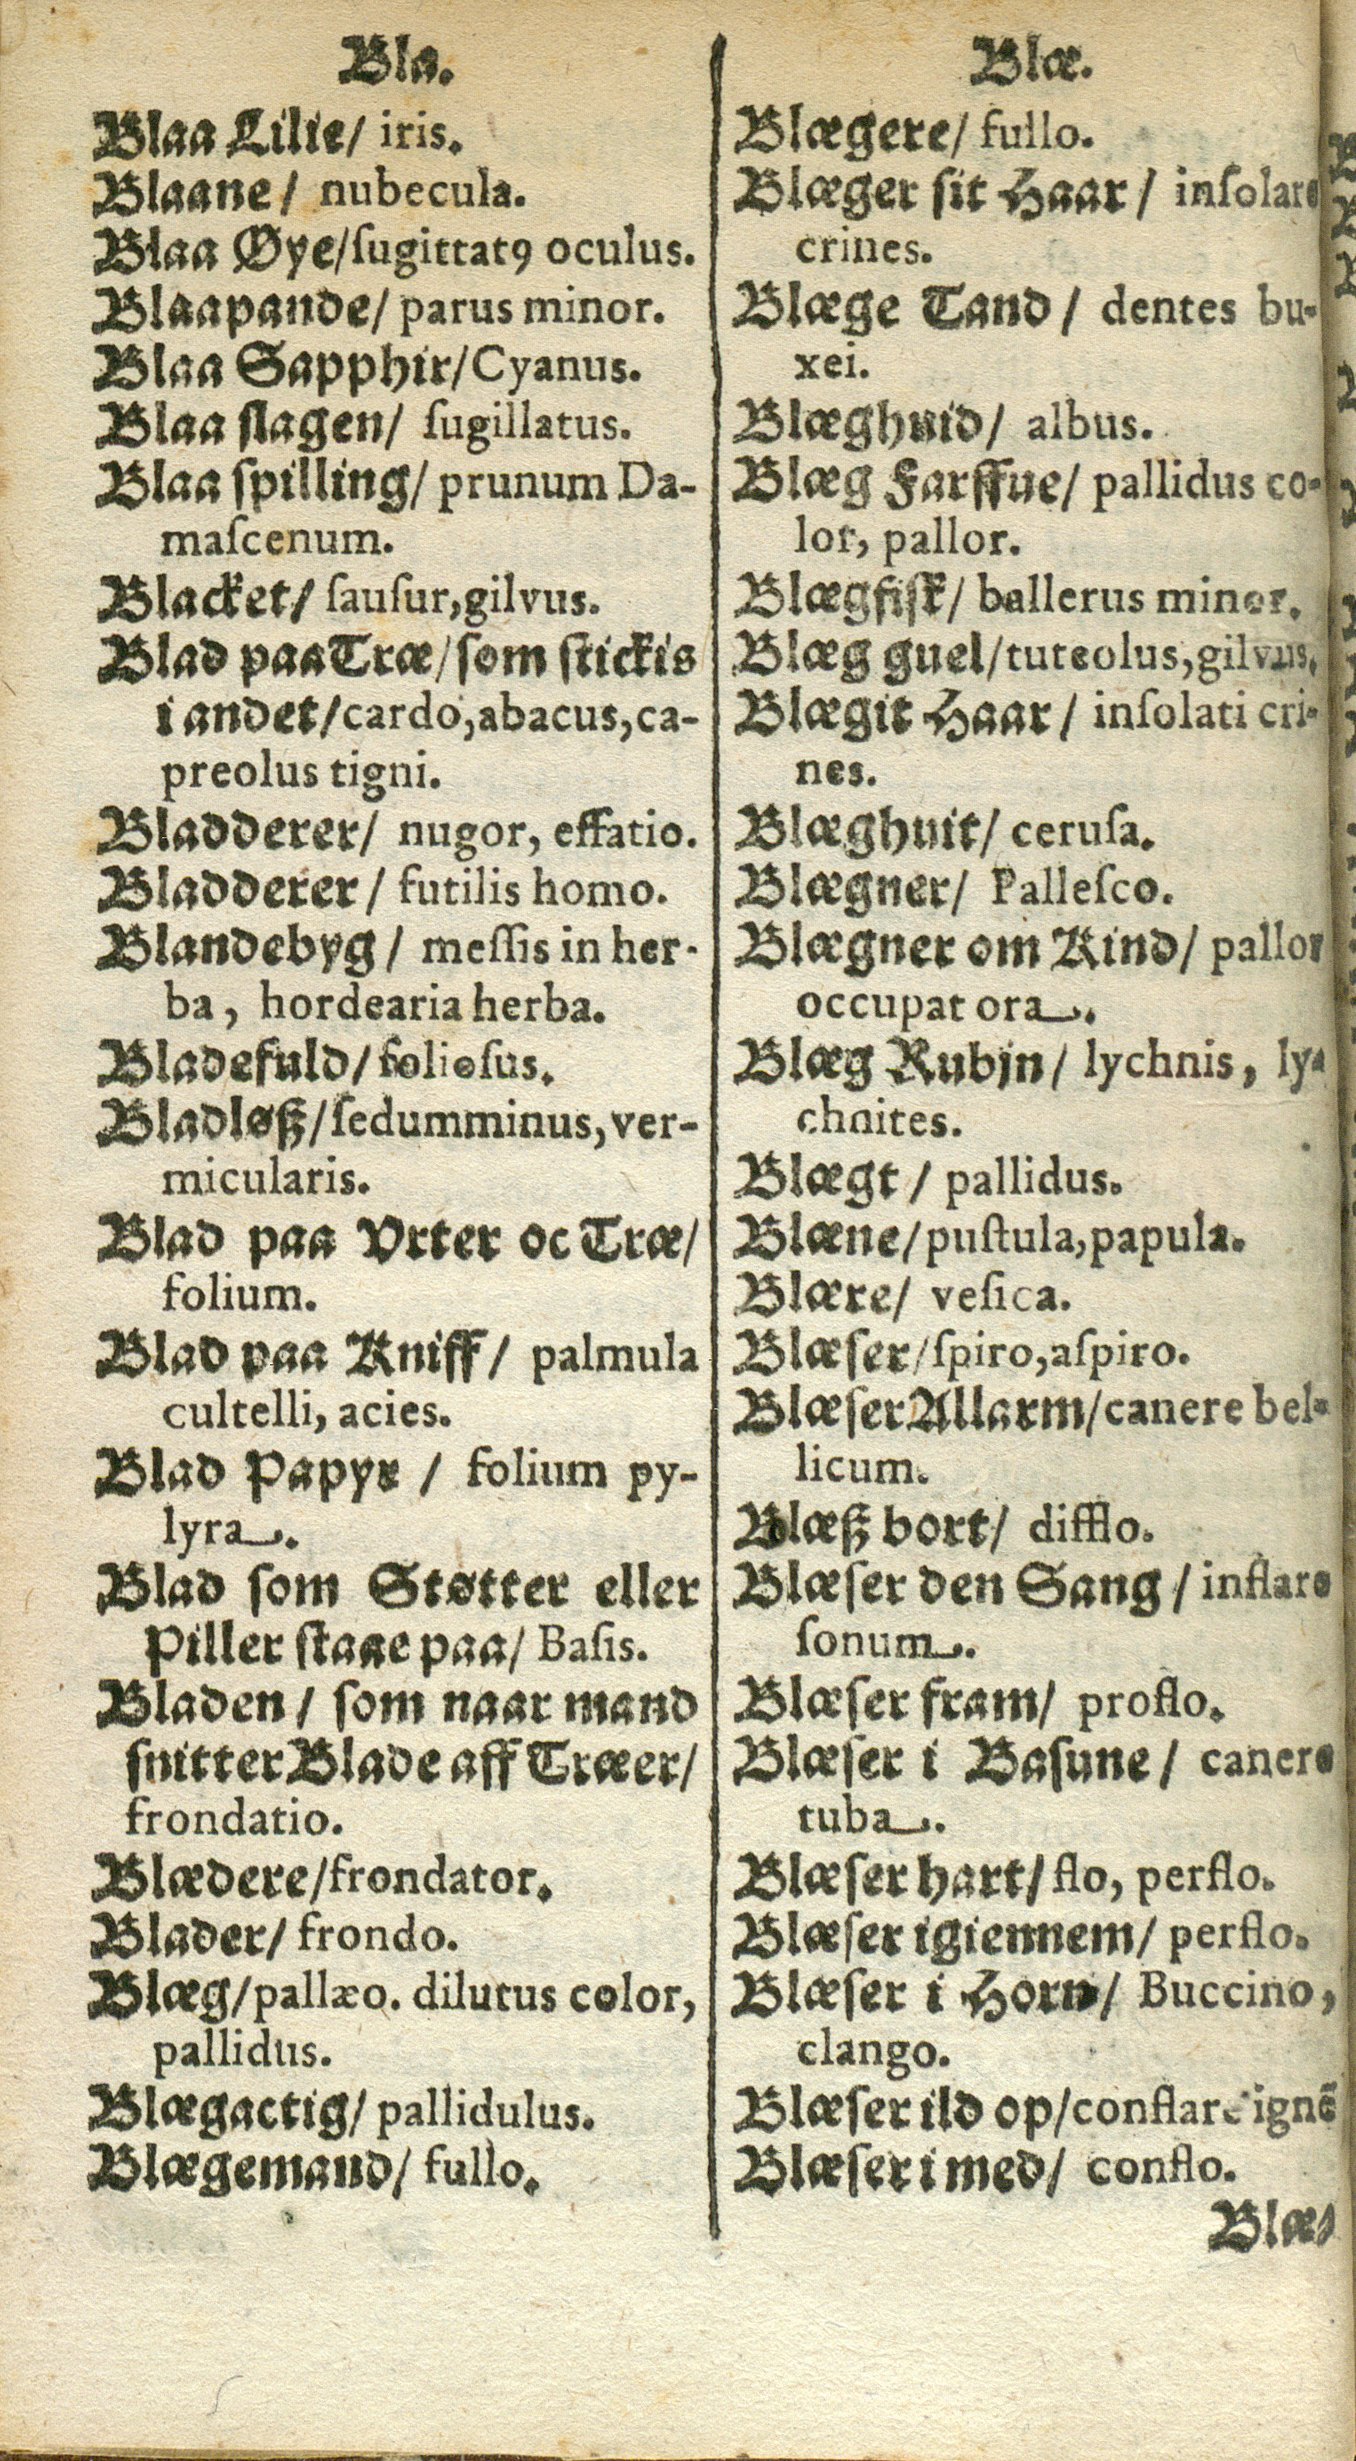 Bla.
Blaa Lilie/ iris.
Blaane/ nubecula.
Blaa Øye/ſugittatꝯ oculus.
Blaapande/ parus minor.
Blaa Sapphir/Cyanus.
Blaa ſlagen/ ſugillatus.
Blaa ſpilling/ prunum Da-
maſcenum.
Blacket/ ſauſur,gilvus.
Blad paa Træ/ſom ſtickis
i andet/cardo,abacus,ca-
preolus tigni.
Bladderer/ nugor, effatio.
Bladderer/ futilis homo.
Blandebyg/ meſſis in her-
ba, hordearia herba.
Bladefuld/folioſus.
Bladløſz/ſedumminus,ver-
micularis.
Blad paa Vrter oc Træ/
folium.
Blad paa Kniff/ palmula
cultelli, acies.
Blad Papyr/ folium py-
lyra.
Blad ſom Støtter eller
Piller ſtaae paa/ Baſis.
Bladen/ ſom naar mand
ſnitter Blade aff Træer/
frondatio.
Blædere/frondator.
Blader/ frondo.
Blæg/pallæo. dilutus color,
pallidus.
Blægactig/ pallidulus.
Blægemand/ fullo.
Blæ.
Blægere/ fullo.
Blæger ſit Haar/ inſolare
crines.
Blæge Tand/ dentes bu-
xei.
Blæghuid/ albus.
Blæg Farffue/ pallidus co-
lor, pallor.
Blægfiſk/ ballerus minor.
Blæg guel/tuteolus,gilvus.
Blægit Haar/ inſolati cri-
nes.
Blæghuit/ ceruſa.
Blægner/ Palleſco.
Blægner om Kind/ pallor
occupat ora.
Blæg Rubjn/ lychnis, ly-
chnites.
Blægt/ pallidus.
Blæne/puſtula,papula.
Blære/ veſica.
Blæſer/ſpiro,aſpiro.
Blæſer Allarm/canere bel-
licum.
Blæſz bort/ difflo.
Blæſer den Sang/ inflare
ſonum.
Blæſer fram/ proflo.
Blæſer i Baſune/ canere
tuba.
Blæſer hart/ flo, perflo.
Blæſer igiennem/ perflo.
Blæſer i Horn/ Buccino,
clango.
Blæſer ild op/conflare ignē
Blæſer i med/ conflo.
Blæ-